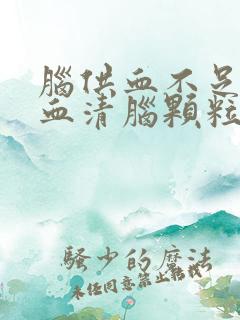 腦供血不足
血清腦顆粒
騷少的魔法
未經同意禁止轉載